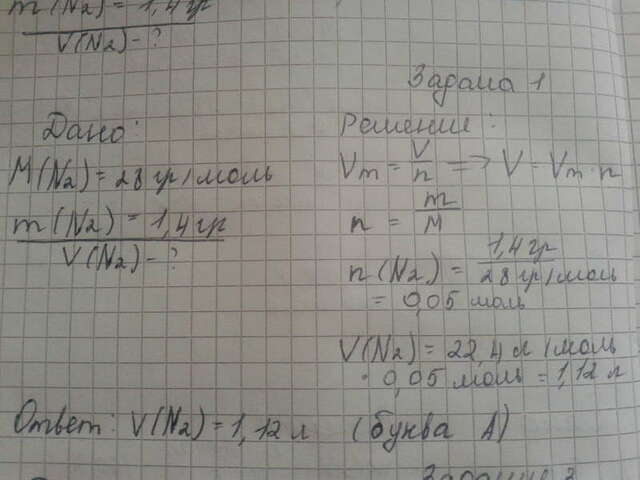 m(N₂) = 1,4 гр
V(N₂) - ?
Задача 1
Дано:
M(N₂) = 28 гр/моль
m(N₂) = 1,4 гр
V(N₂) - ?
Решение:
Vm = V/n => V = Vm · n
n = m/M
n(N₂) = 1,4 гр/28 гр/моль
= 0,05 моль
V(N₂) = 22,4 л/моль
· 0,05 моль = 1,12 л
Ответ: V(N₂) = 1,12 л (буква А)